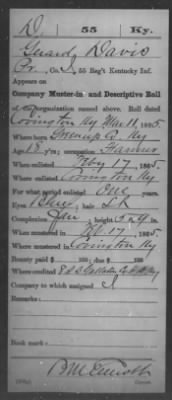 D 55 Ky.
Davis
Co. I, 55 Reg't Kentucky Inf.
Appears on
Company Muster-in and Descriptive Roll
of the organization named above. Roll dated
Covington Ky Mar 11, 1865
Where born Greenup Co. Ky
Age 18 y'rs; occupation Farmer
When enlisted Feby 17, 1865
Where enlisted Covington Ky
For what period enlisted One years.
Eyes Blue; hair Lt
Complexion Fair; height 5 ft. 9 in.
When mustered in Feb. 17, 1865
Where mustered in Covington Ky
Bounty paid $ 100; due $ 100
Where credited
Company to which assigned I
Remarks:
Book mark:
Copyist.